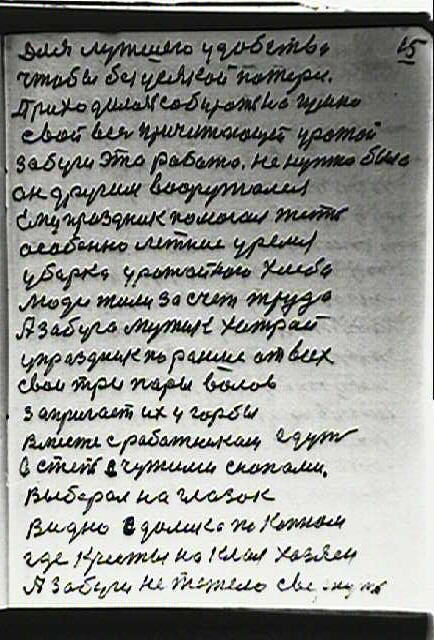 15
Для лутшего удобства
чтобы без усякой потери.
Приходилося собирать на гумно
свой весь причитающей урожай
Забуги Эта работа. не нужна была
он другим вооружался
Ему праздник помогал жить
особенно летние уремя
уборка урожайного хлеба
люди жили за счет труда
А Забуга мужик хитрай
упраздник по раньше от всех
свои три пары волов
запрягает их у горбы
вместе с работникам едуть
в степь с чужими снопами.
выберал на глазок
видно сдалика по копнам
где кресты на клал хозяен
А Забуги не тежело